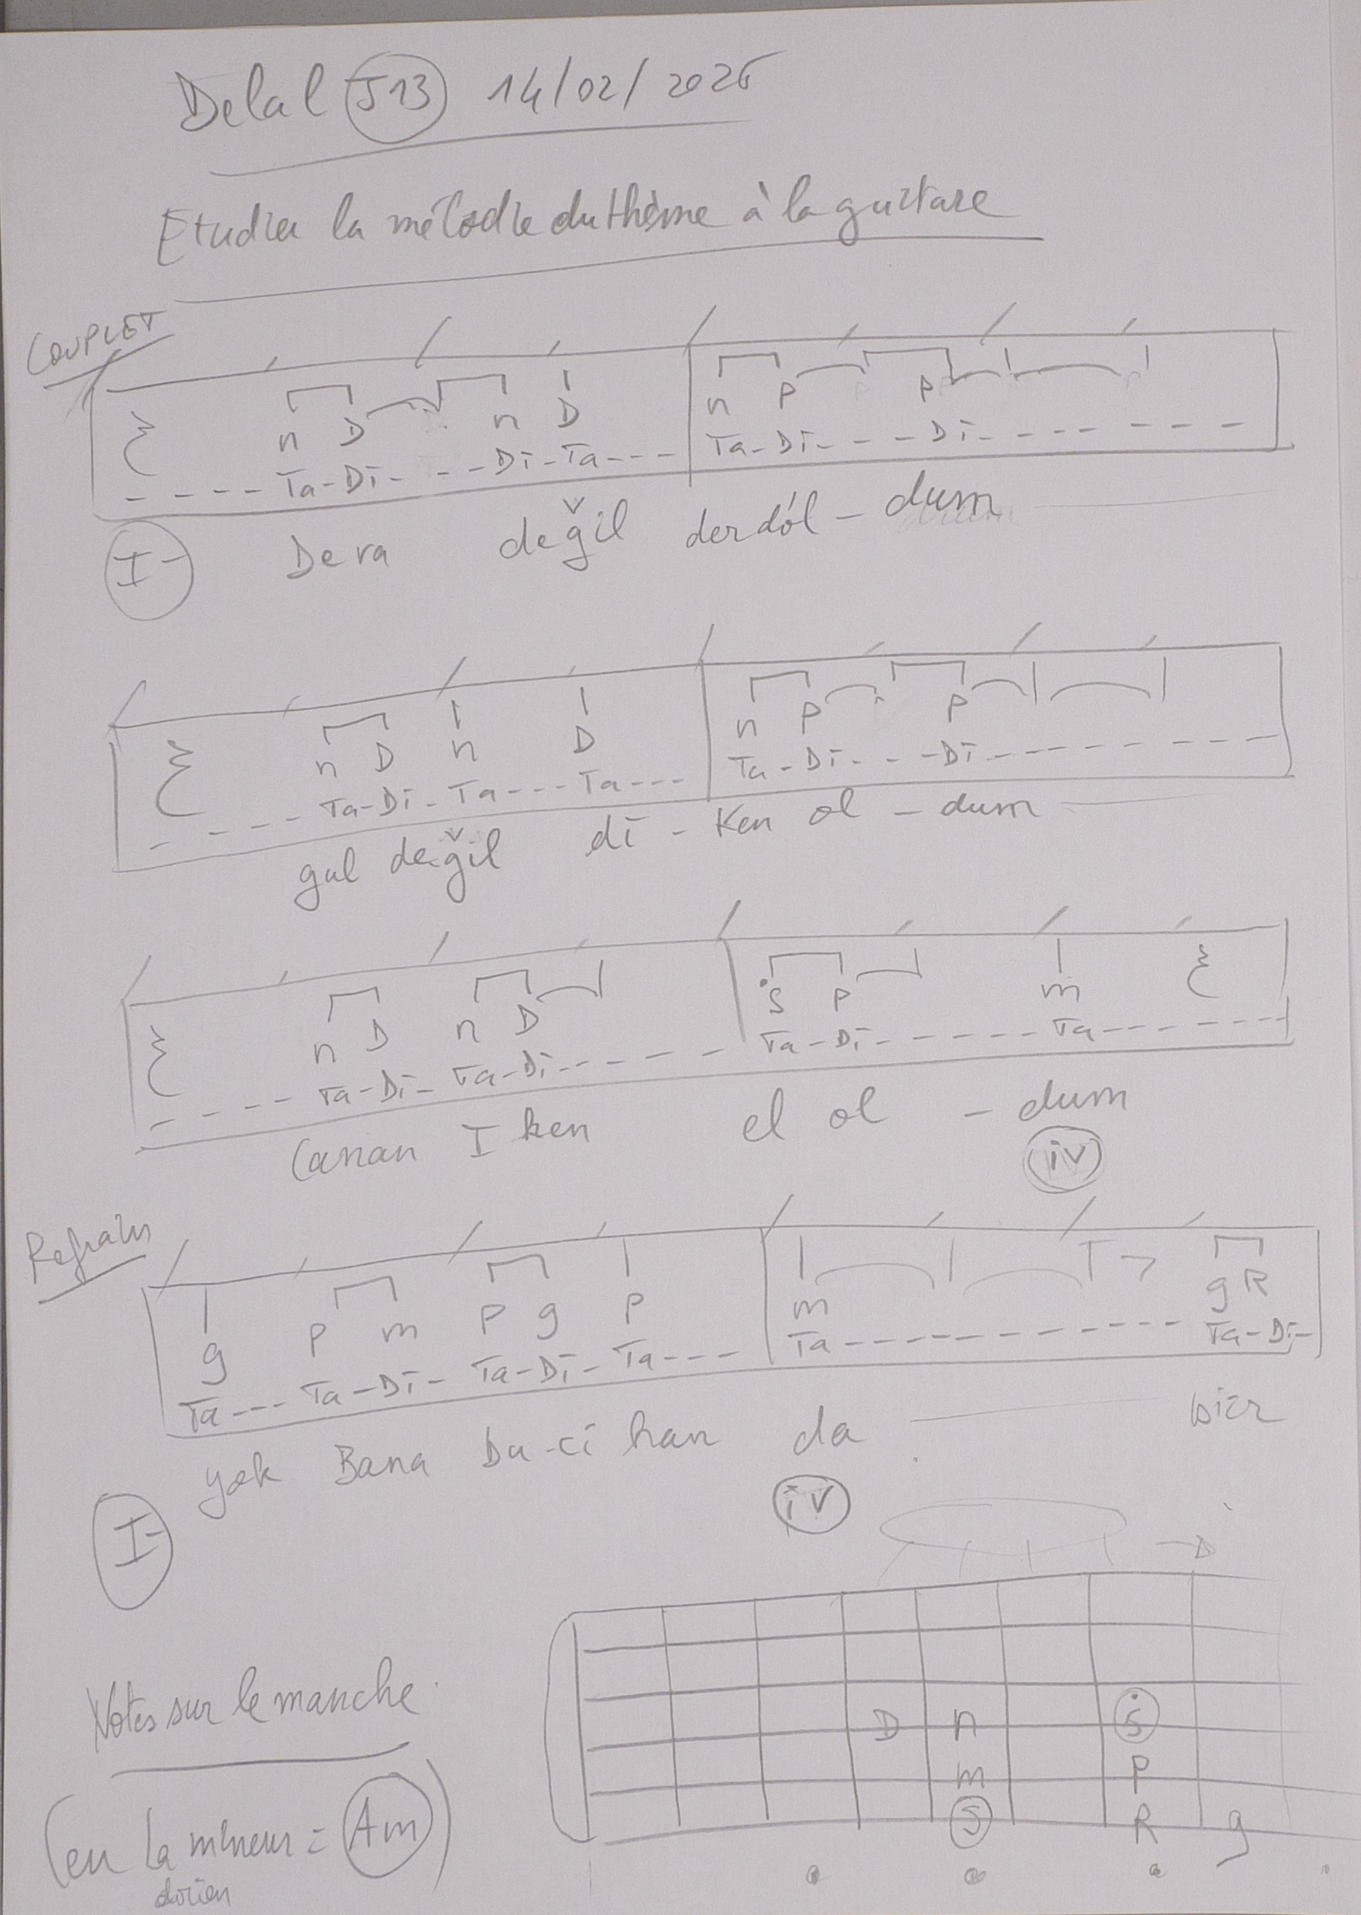 Delal J13 14/02/2026
Etudier la mélodie du thème à la guitare
COUPLET
n D n D n P P
_ _ _ _ Ta-Di- _ _-Di-Ta--- Ta-Di-- - -Di- - - - - - - -
I- Deva değil derdól - dum
n D n D n P P
_ _ _ _ Ta-Di-Ta---Ta--- Ta-Di-- - -Di- - - - - - - -
gul değil di - Ken ol - dum
n D n D Ṡ P m
_ _ _ _ Ta-Di-Ta-Di-- - - - - Ta-Di- - - - - - Ta- - - - - - -
Canan I ken el ol - dum
iv
Refrain
g P m P g P m g R
Ta --- Ta-Di- Ta-Di-Ta--- Ta- - - - - - - - - - - Ta-Di-
yok Bana bu-ci han da bier
I- iv
→ D
Notes sur le manche.
D n Ṡ
m P
S R g
(en La mineur = Am)
dorien